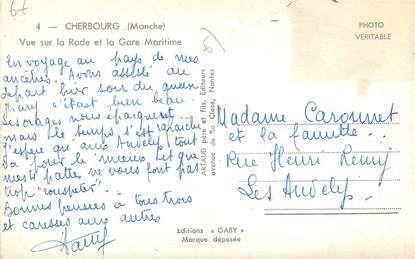 4 - CHERBOURG (Manche)
Vue sur la Rade et la Gare Maritime
PHOTO
VERITABLE
En voyage au pays de mes
ancêtres. Avons assisté au
depart hier soir du queen
Mary c'était bien beau.
Les orages nous épargnent
mais le temps s'est rafraichi
J'espère qu'aux Andelys tout
va pour le mieux, et que
mes patte ne vous font pas
trop "rouspéter"...
Bonnes pensées à tous trois
et caresses aux autres
ARTAUD père et fils, Editeurs
avenue de la Close, Nantes
Madame Carounet
et la famille..
Rue Henri Remy
Les Andelys.
Editions « GABY »
Marque déposée